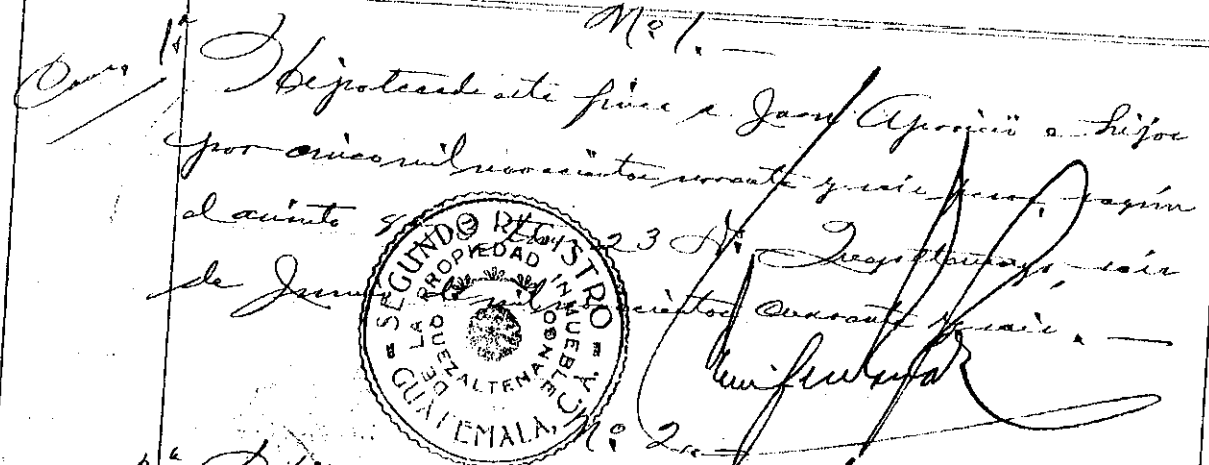 Nº 1.—
1ª Hipotecada esta finca a Juan Aparicio e hijos
por cinco mil novecientos noventa y seis pesos, según
el asiento 23 Quezaltenango, seis
de Junio de mil novecientos cuarenta y seis.—
SEGUNDO REGISTRO
DE LA PROPIEDAD INMUEBLE
QUEZALTENANGO
GUATEMALA, C. A.
Nº 2.—